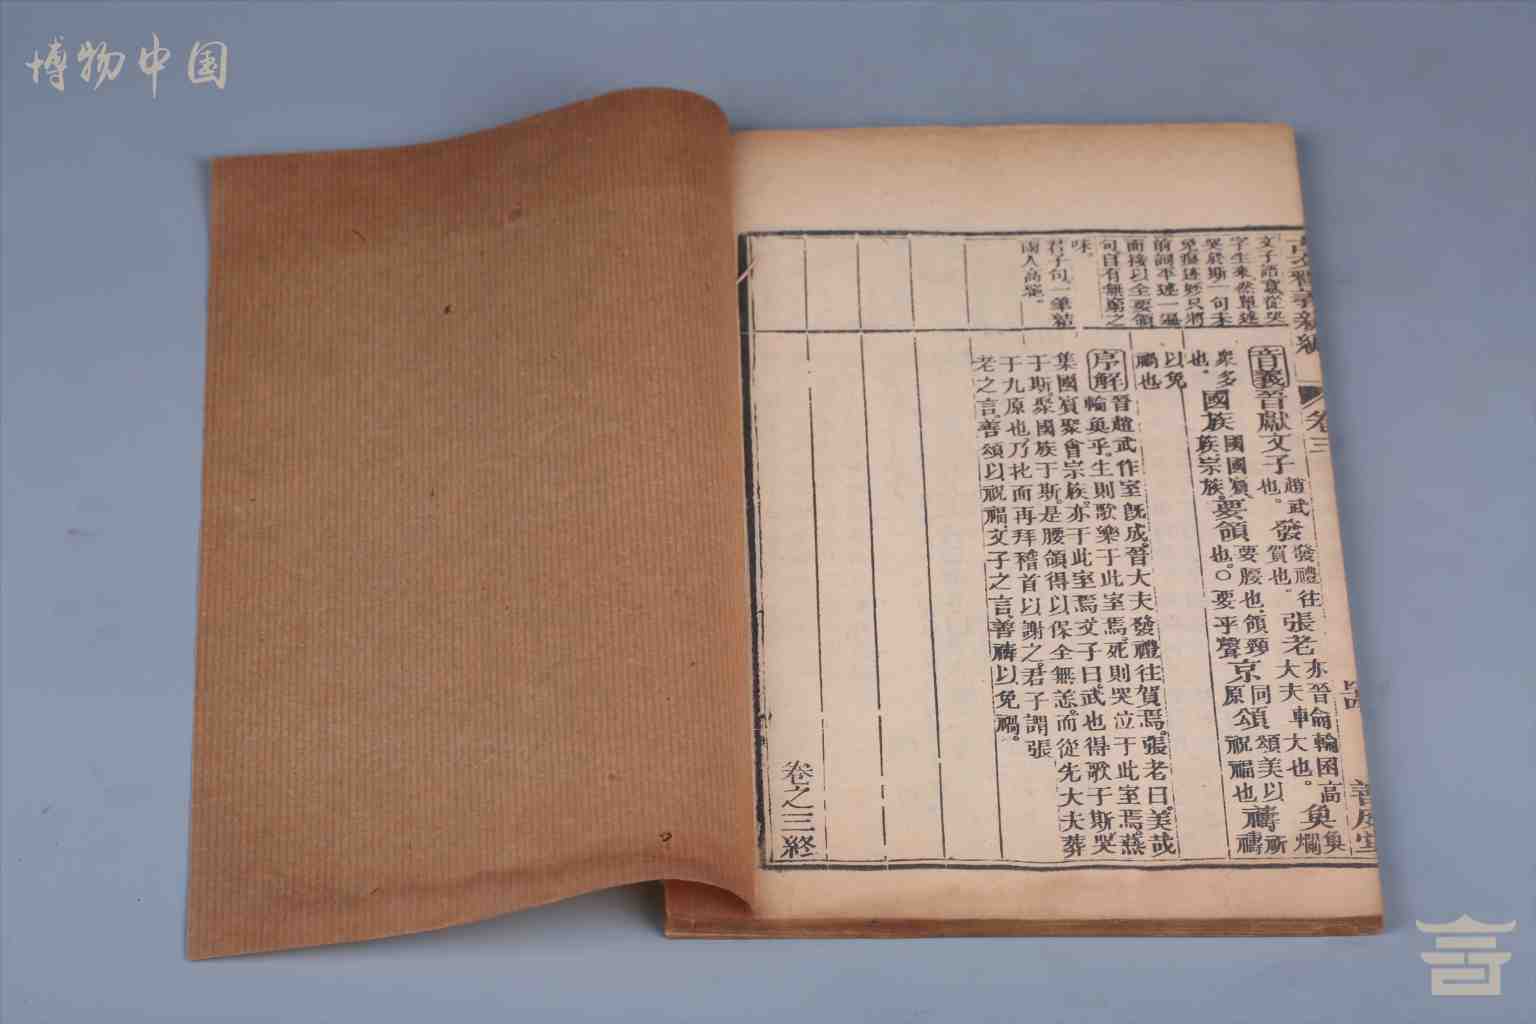 博物中国
古文釋義新編 卷三
善成堂
文子語意從哭
字生來然單述
哭於斯一句未
免復述妙只將
前詞平述一遍
而接以全要領
句自有無窮之
味。
君子句一筆結
兩人高鑒。
音義 晉獻文子 趙武也。 發 發禮往賀也。 張老 亦晉大夫 輪 輪囷高大也。 奐 奐爛
衆多也。 國族 國國賓族宗族。 要領 要腰也領頸也。○要平聲 京 原同 頌 頌美以祝福也 禱 禱祈
以免禍也
序解 晉趙武作室旣成。晉大夫發禮往賀焉。張老曰。美哉
輪奐乎。生則歌樂于此室焉。死則哭泣于此室焉。燕
集國賓聚會宗族。亦于此室焉。文子曰。武也得歌于斯。哭
于斯。聚國族于斯。是腰領得以保全無恙。而從先大夫葬
于九原也。乃北面再拜稽首以謝之。君子謂張
老之言。善頌以祝福。文子之言。善禱以免禍。
卷之三終